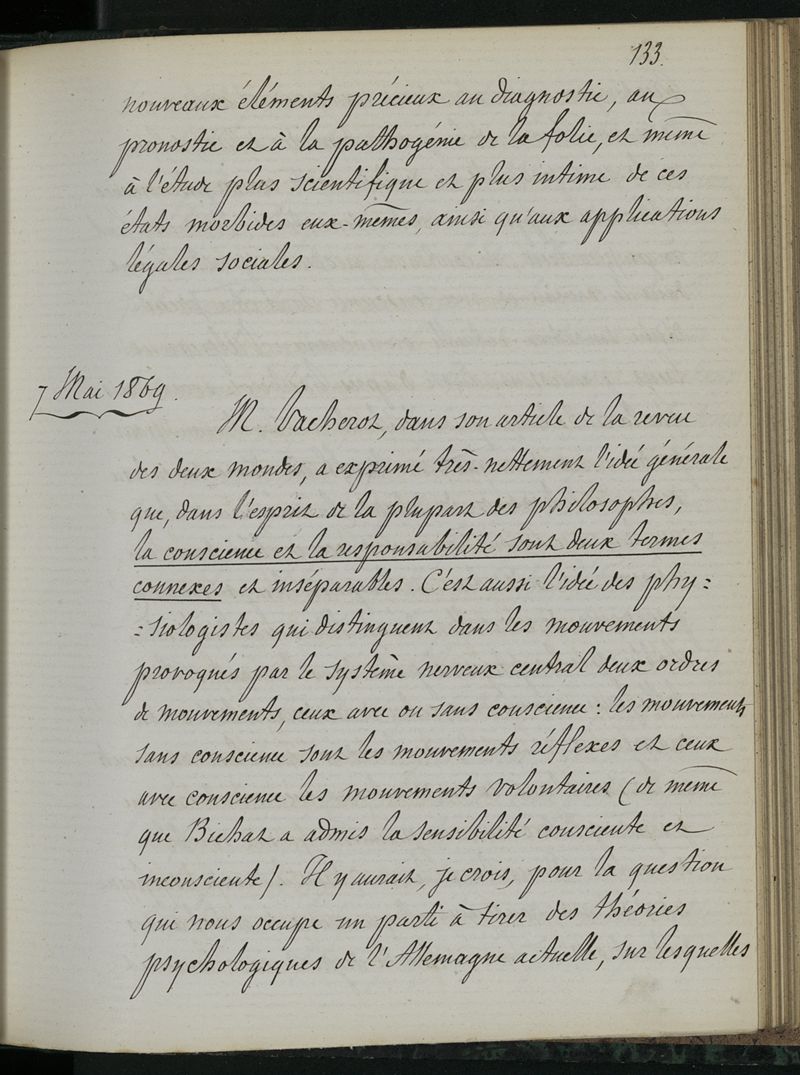 133.
nouveaux éléments précieux au diagnostic, au
pronostic et à la pathogénie de la folie, et même
à l'étude plus scientifique et plus intime de ces
états morbides eux-mêmes, ainsi qu'aux applications
légales sociales.
7 Mai 1869.
M. Vacherot, dans son article de la revue
des deux mondes, a exprimé très-nettement l'idée générale
que, dans l'esprit de la plupart des philosophes,
la conscience et la responsabilité sont deux termes
connexes et inséparables. C'est aussi l'idée des phy=
=siologistes qui distinguent dans les mouvements
provoqués par le système nerveux central deux ordres
de mouvements, ceux avec ou sans conscience : les mouvements
sans conscience sont les mouvements réflexes et ceux
avec conscience les mouvements volontaires (de même
que Bichat a admis la sensibilité consciente et
inconsciente). Il y aurait, je crois, pour la question
qui nous occupe un parti à tirer des théories
psychologiques de l'Allemagne actuelle, sur lesquelles